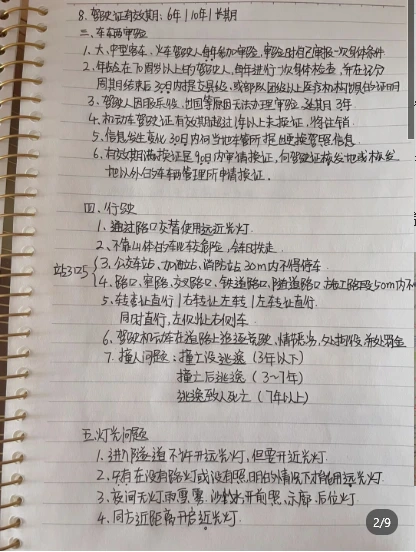 8. 驾驶证有效期：6年|10年|长期
三、车本两审验
1. 大、中型客车、火车驾驶人每年参加年验，审验时自己申报一次身体条件
2. 年龄在70周岁以上的驾驶人，每年进行一次身体检查，并在记分
周期结束后30日内提交县级、或部队团级以上医疗机构出具的证明
3. 驾驶人因服兵役、出国等原因无法办理审验，延期3年
4. 机动车驾驶证有效期超过1年以上未换证，将注销
5. 信息发生变化30日内向当地车管所提出更换驾照信息
6. 有效期满换证是90日内申请换证，向驾驶证核发地或核发
地以外的车辆管理所申请换证.
四、行驶
1. 通过路口交替使用远近光灯.
2. 不靠山体的车比较危险，会车时先走.
站3口5
3. 公交车站、加油站、消防站30m内不得停车
4. 路口，窄路，交叉路口，铁道路口，隧道路口，施工路段50m内不
5. 转弯让直行|右转让左转|左转让直行.
同时直行，左侧让右侧车.
6. 驾驶机动车在道路上追逐竞驶，情节恶劣，处拘役，并处罚金
7. 撞人问题：撞亡没逃逸（3年以下）
撞亡后逃逸（3~7年）
逃逸致人死亡（7年以上）
五.灯光问题
1. 进入隧道不许开远光灯，但要开近光灯.
2. 只有在没有路灯或没有照明的情况下才能用远光灯.
3. 夜间无灯雨雪雾、沙秋水开前照、示廓、后位灯
4. 同方近距离开启近光灯.
2/9